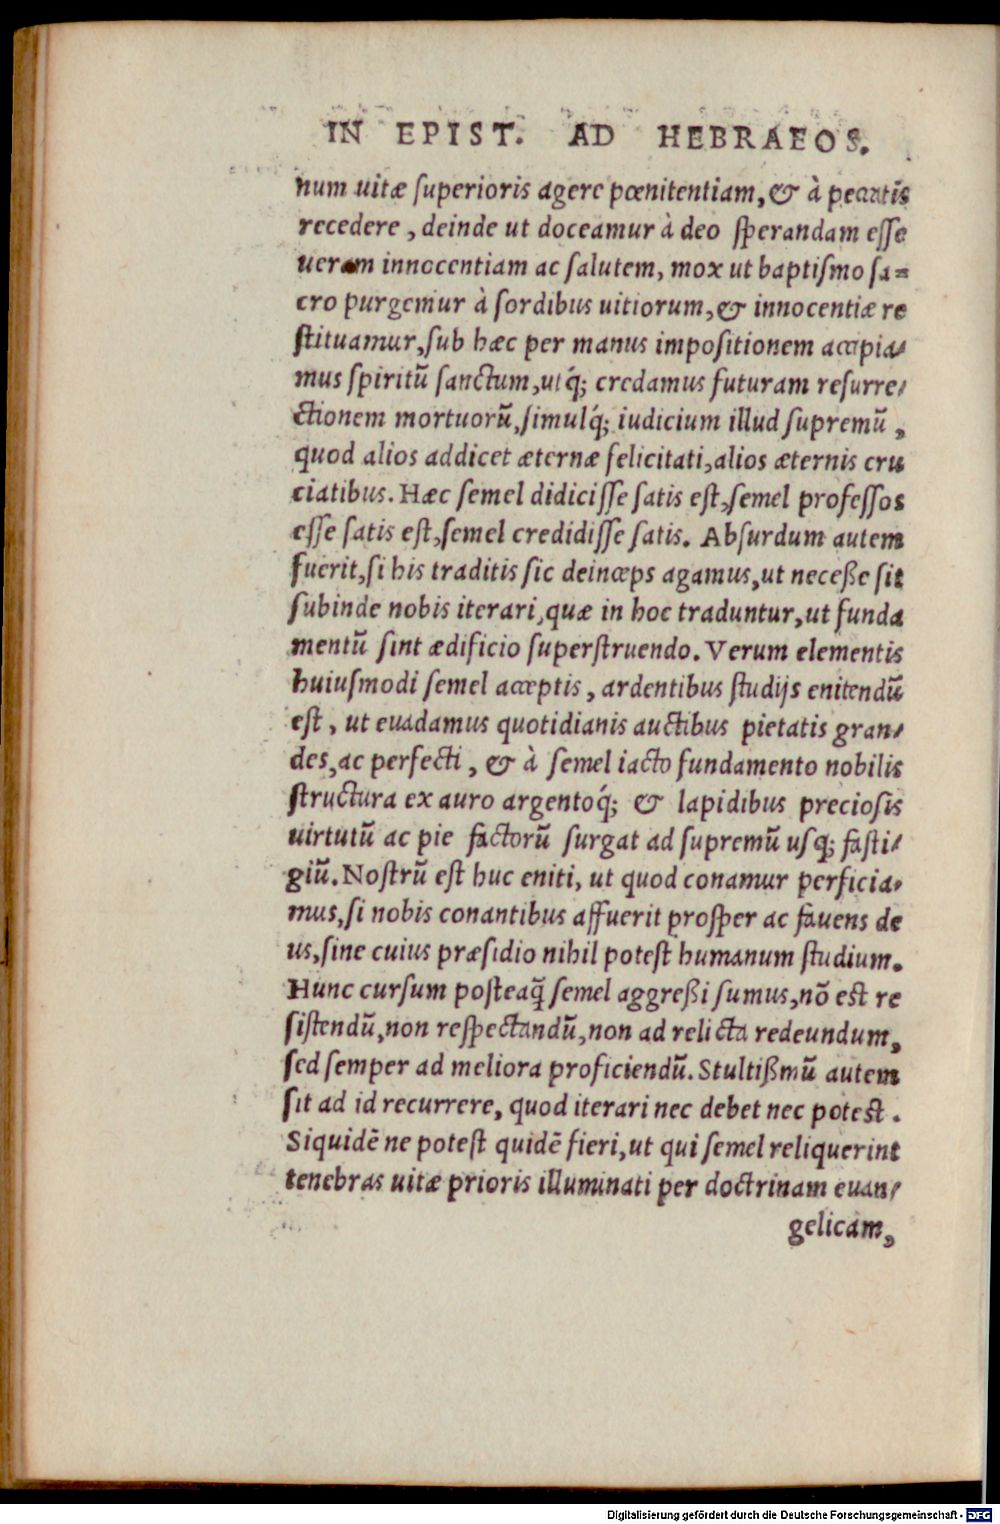 IN EPIST. AD HEBRAEOS.
num uitæ superioris agere pœnitentiam, & à peccatis
recedere, deinde ut doceamur à deo sperandam esse
ueram innocentiam ac salutem, mox ut baptismo sa=
cro purgemur à sordibus uitiorum, & innocentiæ re
stituamur, sub hæc per manus impositionem accipia/
mus spiritū sanctum, utq́; credamus futuram resurre/
ctionem mortuorū, simulq́; iudicium illud supremū,
quod alios addicet æternæ felicitati, alios æternis cru
ciatibus. Hæc semel didicisse satis est, semel professos
esse satis est, semel credidisse satis. Absurdum autem
fuerit, si his traditis sic deinceps agamus, ut neceße sit
subinde nobis iterari, quæ in hoc traduntur, ut funda
mentū sint ædificio superstruendo. Verum elementis
huiusmodi semel acceptis, ardentibus studijs enitendū
est, ut euadamus quotidianis auctibus pietatis gran/
des, ac perfecti, & à semel iacto fundamento nobilis
structura ex auro argentoq́; & lapidibus preciosis
uirtutū ac pie factorū surgat ad supremū usq; fasti/
giū. Nostrū est huc eniti, ut quod conamur perficia/
mus, si nobis conantibus affuerit prosper ac fauens de
us, sine cuius præsidio nihil potest humanum studium.
Hunc cursum posteaq̃ semel aggreßi sumus, nō est re
sistendū, non respectandū, non ad relicta redeundum,
sed semper ad meliora proficiendū. Stultißmū autem
sit ad id recurrere, quod iterari nec debet nec potest.
Siquidē ne potest quidē fieri, ut qui semel reliquerint
tenebras uitæ prioris illuminati per doctrinam euan/
gelicam,
Digitalisierung gefördert durch die Deutsche Forschungsgemeinschaft - DFG